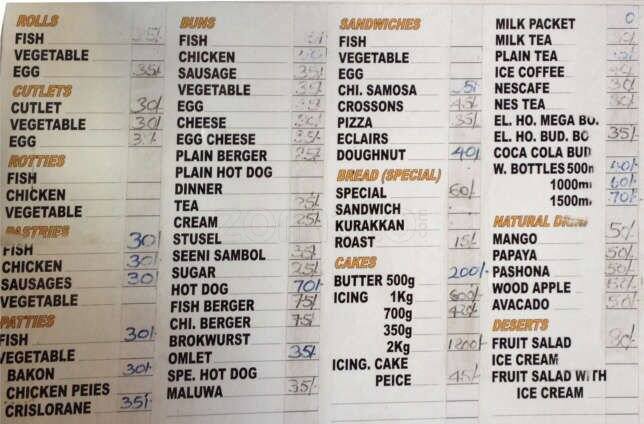 ROLLS
FISH 35/-
VEGETABLE
EGG 35/-
CUTLETS
CUTLET 30/-
VEGETABLE 30/-
EGG
ROTTIES
FISH
CHICKEN
VEGETABLE
PASTRIES
FISH 30/-
CHICKEN 30/-
SAUSAGES 30/
VEGETABLE
PATTIES
FISH 30/-
VEGETABLE
BAKON 30/-
CHICKEN PEIES
CRISLORANE 35/-
BUNS
FISH
CHICKEN
SAUSAGE 35/
VEGETABLE
EGG
CHEESE
EGG CHEESE
PLAIN BERGER
PLAIN HOT DOG
DINNER
TEA 25/-
CREAM 25/-
STUSEL
SEENI SAMBOL
SUGAR 25/-
HOT DOG 70/-
FISH BERGER 75/-
CHI. BERGER 75/-
BROKWURST
OMLET 35/-
SPE. HOT DOG
MALUWA 35/-
SANDWICHES
FISH
VEGETABLE
EGG
CHI. SAMOSA
CROSSONS 45/-
PIZZA 35/-
ECLAIRS
DOUGHNUT 40/-
BREAD (SPECIAL)
SPECIAL 60/-
SANDWICH
KURAKKAN
ROAST 15/-
CAKES
BUTTER 500g 200/-
ICING 1Kg 600/-
700g 420/-
350g
2Kg 1200/-
ICING. CAKE
PEICE 45/-
MILK PACKET
MILK TEA
PLAIN TEA
ICE COFFEE
NESCAFE
NES TEA
EL. HO. MEGA BO.
EL. HO. BUD. BO 35/-
COCA COLA BUD
W. BOTTLES 500m
1000m 60/-
1500m 70/-
NATURAL
MANGO 50/-
PAPAYA 50/-
PASHONA 50/-
WOOD APPLE
AVACADO 50/-
DESERTS
FRUIT SALAD
ICE CREAM
FRUIT SALAD WITH
ICE CREAM